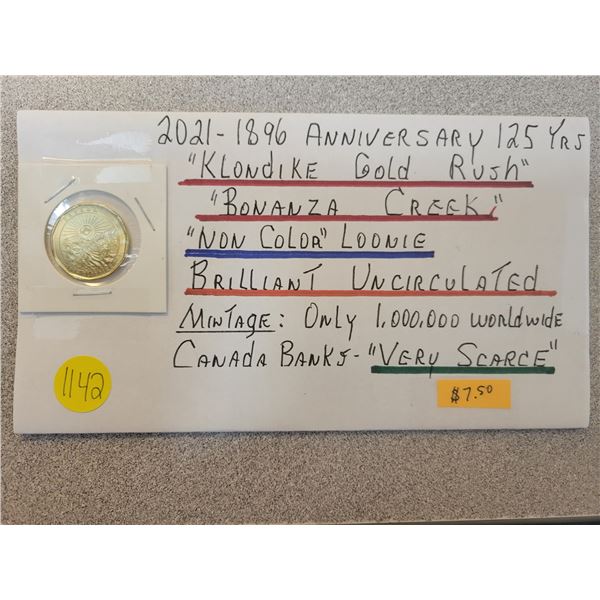 2021-1896 ANNIVERSARY 125 YRS
"KLONDIKE GOLD RUSH"
"BONANZA CREEK"
"NON COLOR" LOONIE
BRILLIANT UNCIRCULATED
MINTAGE: ONLY 1,000,000 WORLDWIDE
CANADA BANKS - "VERY SCARCE"
1142
$7.50